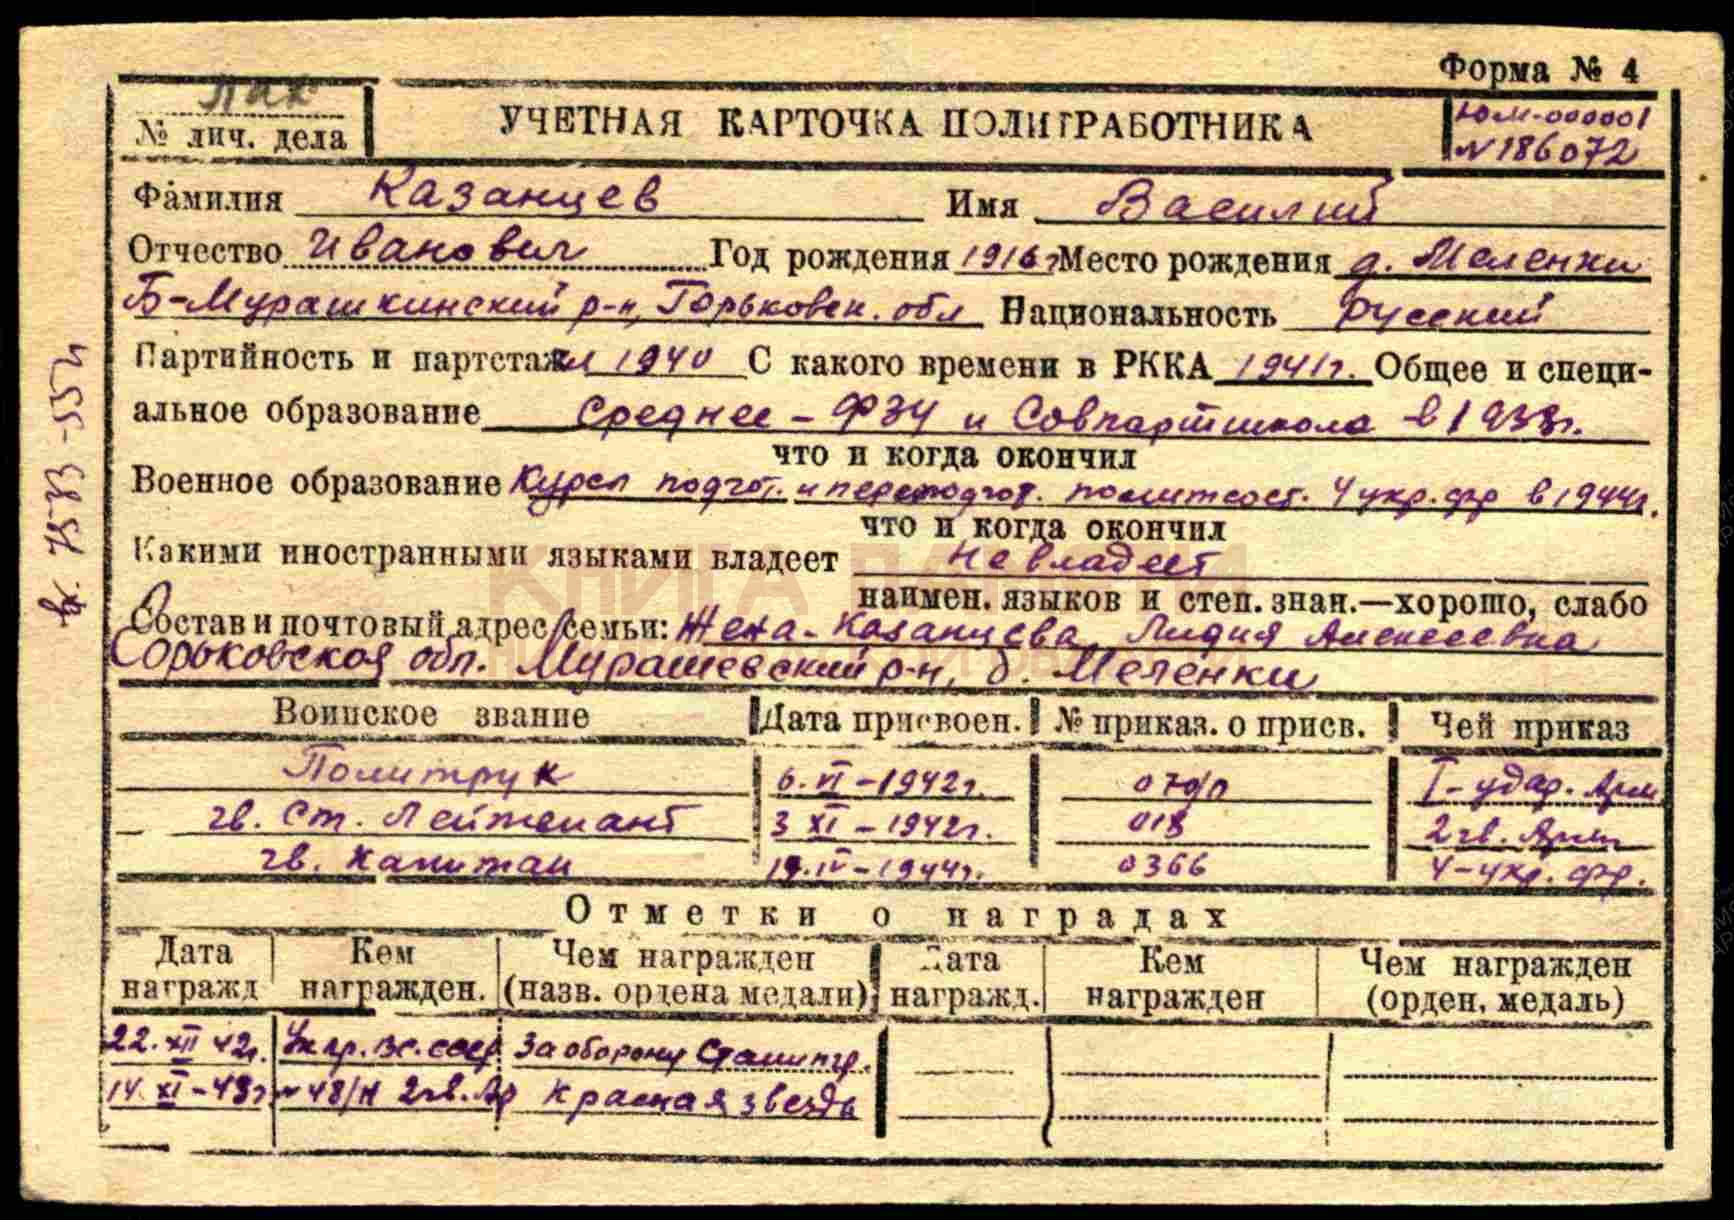 Форма № 4
№ лич. дела
УЧЕТНАЯ КАРТОЧКА ПОЛИТРАБОТНИКА
ЮМ-000001
№186072
Фамилия Казанцев Имя Василий
Отчество Иванович Год рождения 1916 г Место рождения д. Меленки
Б-Мурашкинский р-н, Горьковск. обл Национальность Русский
Партийность и партстаж 1940 С какого времени в РККА 1941г. Общее и специ-
альное образование Среднее - ФЗУ и Совпартшкола в 1938г.
что и когда окончил
Военное образование Курсы подгот. и переподгот. политсост. 4 укр. фр в 1944г.
что и когда окончил
Какими иностранными языками владеет не владеет
наимен. языков и степ. знан.—хорошо, слабо
Состав и почтовый адрес семьи: Жена - Казанцева Лидия Алексеевна
Горьковская обл. Мурашевский р-н, д. Меленки
Воинское звание Дата присвоен. № приказ. о присв. Чей приказ
Политрук 6.VI-1942г. 070/п I-удар. Арм
гв. Ст. Лейтенант 3 XI-1942г. 018 2 гв. Арм
гв. Капитан 19.IV-1944г. 0366 4-укр. фр.
Отметки о наградах
Дата награжд Кем награжден. Чем награжден (назв. ордена медали) Дата награжд. Кем награжден Чем награжден (орден, медаль)
22.XII 42г. Ук пр. ВС. СССР За оборону Сталингр.
14.XI-43г №48/н 2 гв. Ар Красная звезда
КНИГА ПАМЯТИ